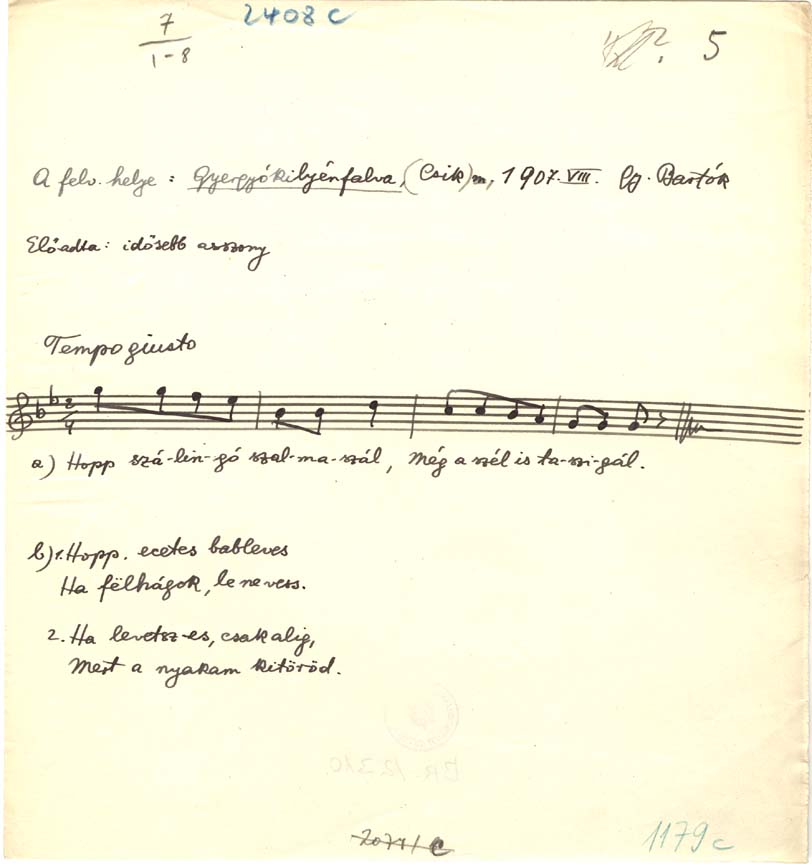 7
1-8
2408 c
5
A felv. helye: Gyergyókilyénfalva, (Csik)m, 1907. VIII. Gy. Bartók
Előadta: idősebb asszony
Tempo giusto
2
4
a) Hopp szá-lin-gó szal-ma-szál, Még a szél is ta-szi-gál.
b) 1. Hopp. ecetes bableves
Ha fëlhágok, le ne vess.
2. Ha levetsz-es, csak alig,
Mert a nyakam kitöröd.
2071/c
1179 c